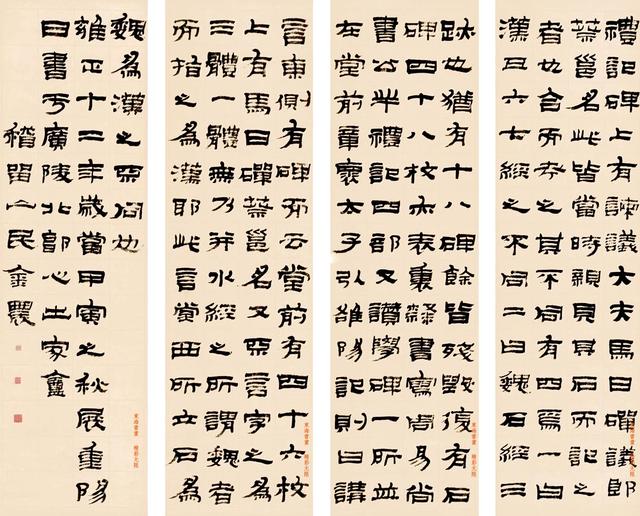 禮記碑上有諫議大夫馬日磾議郎
蔡邕名此皆當時親見其石而記之
者也合而考之其不同有四焉一曰
漢六七經之不同二曰魏石經三
跡也猶有十八碑餘皆殘毀復有石
碑四十八枚亦表裏隸書寫尚易尚
書公羊禮記四部又讚學碑一所並
在堂前章懷太子引雒陽記則曰講
言東側有碑而云堂前有四十六枚
上有馬日磾蔡邕名又不言字之為
三體一體無乃并水經之所謂魏者
而指之為漢耶此言堂西所立石為
魏為漢之不同也
雍正十二年歲當甲寅之秋展重陽
日書于廣陵北郭心出家盦
稽留山民金農